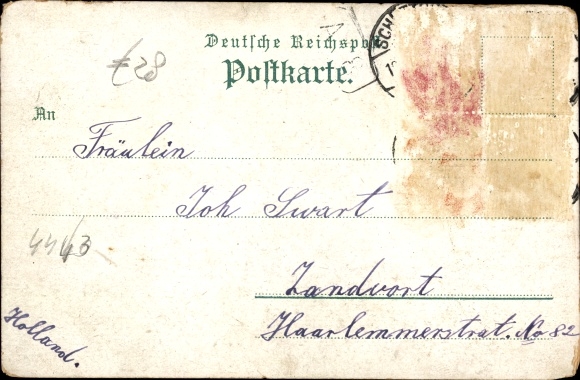 Deutsche Reichspost
Postkarte.
€28
An
Fräulein
Joh Swart
4443
Zandvort
Haarlemmerstrat. No 82
Holland.